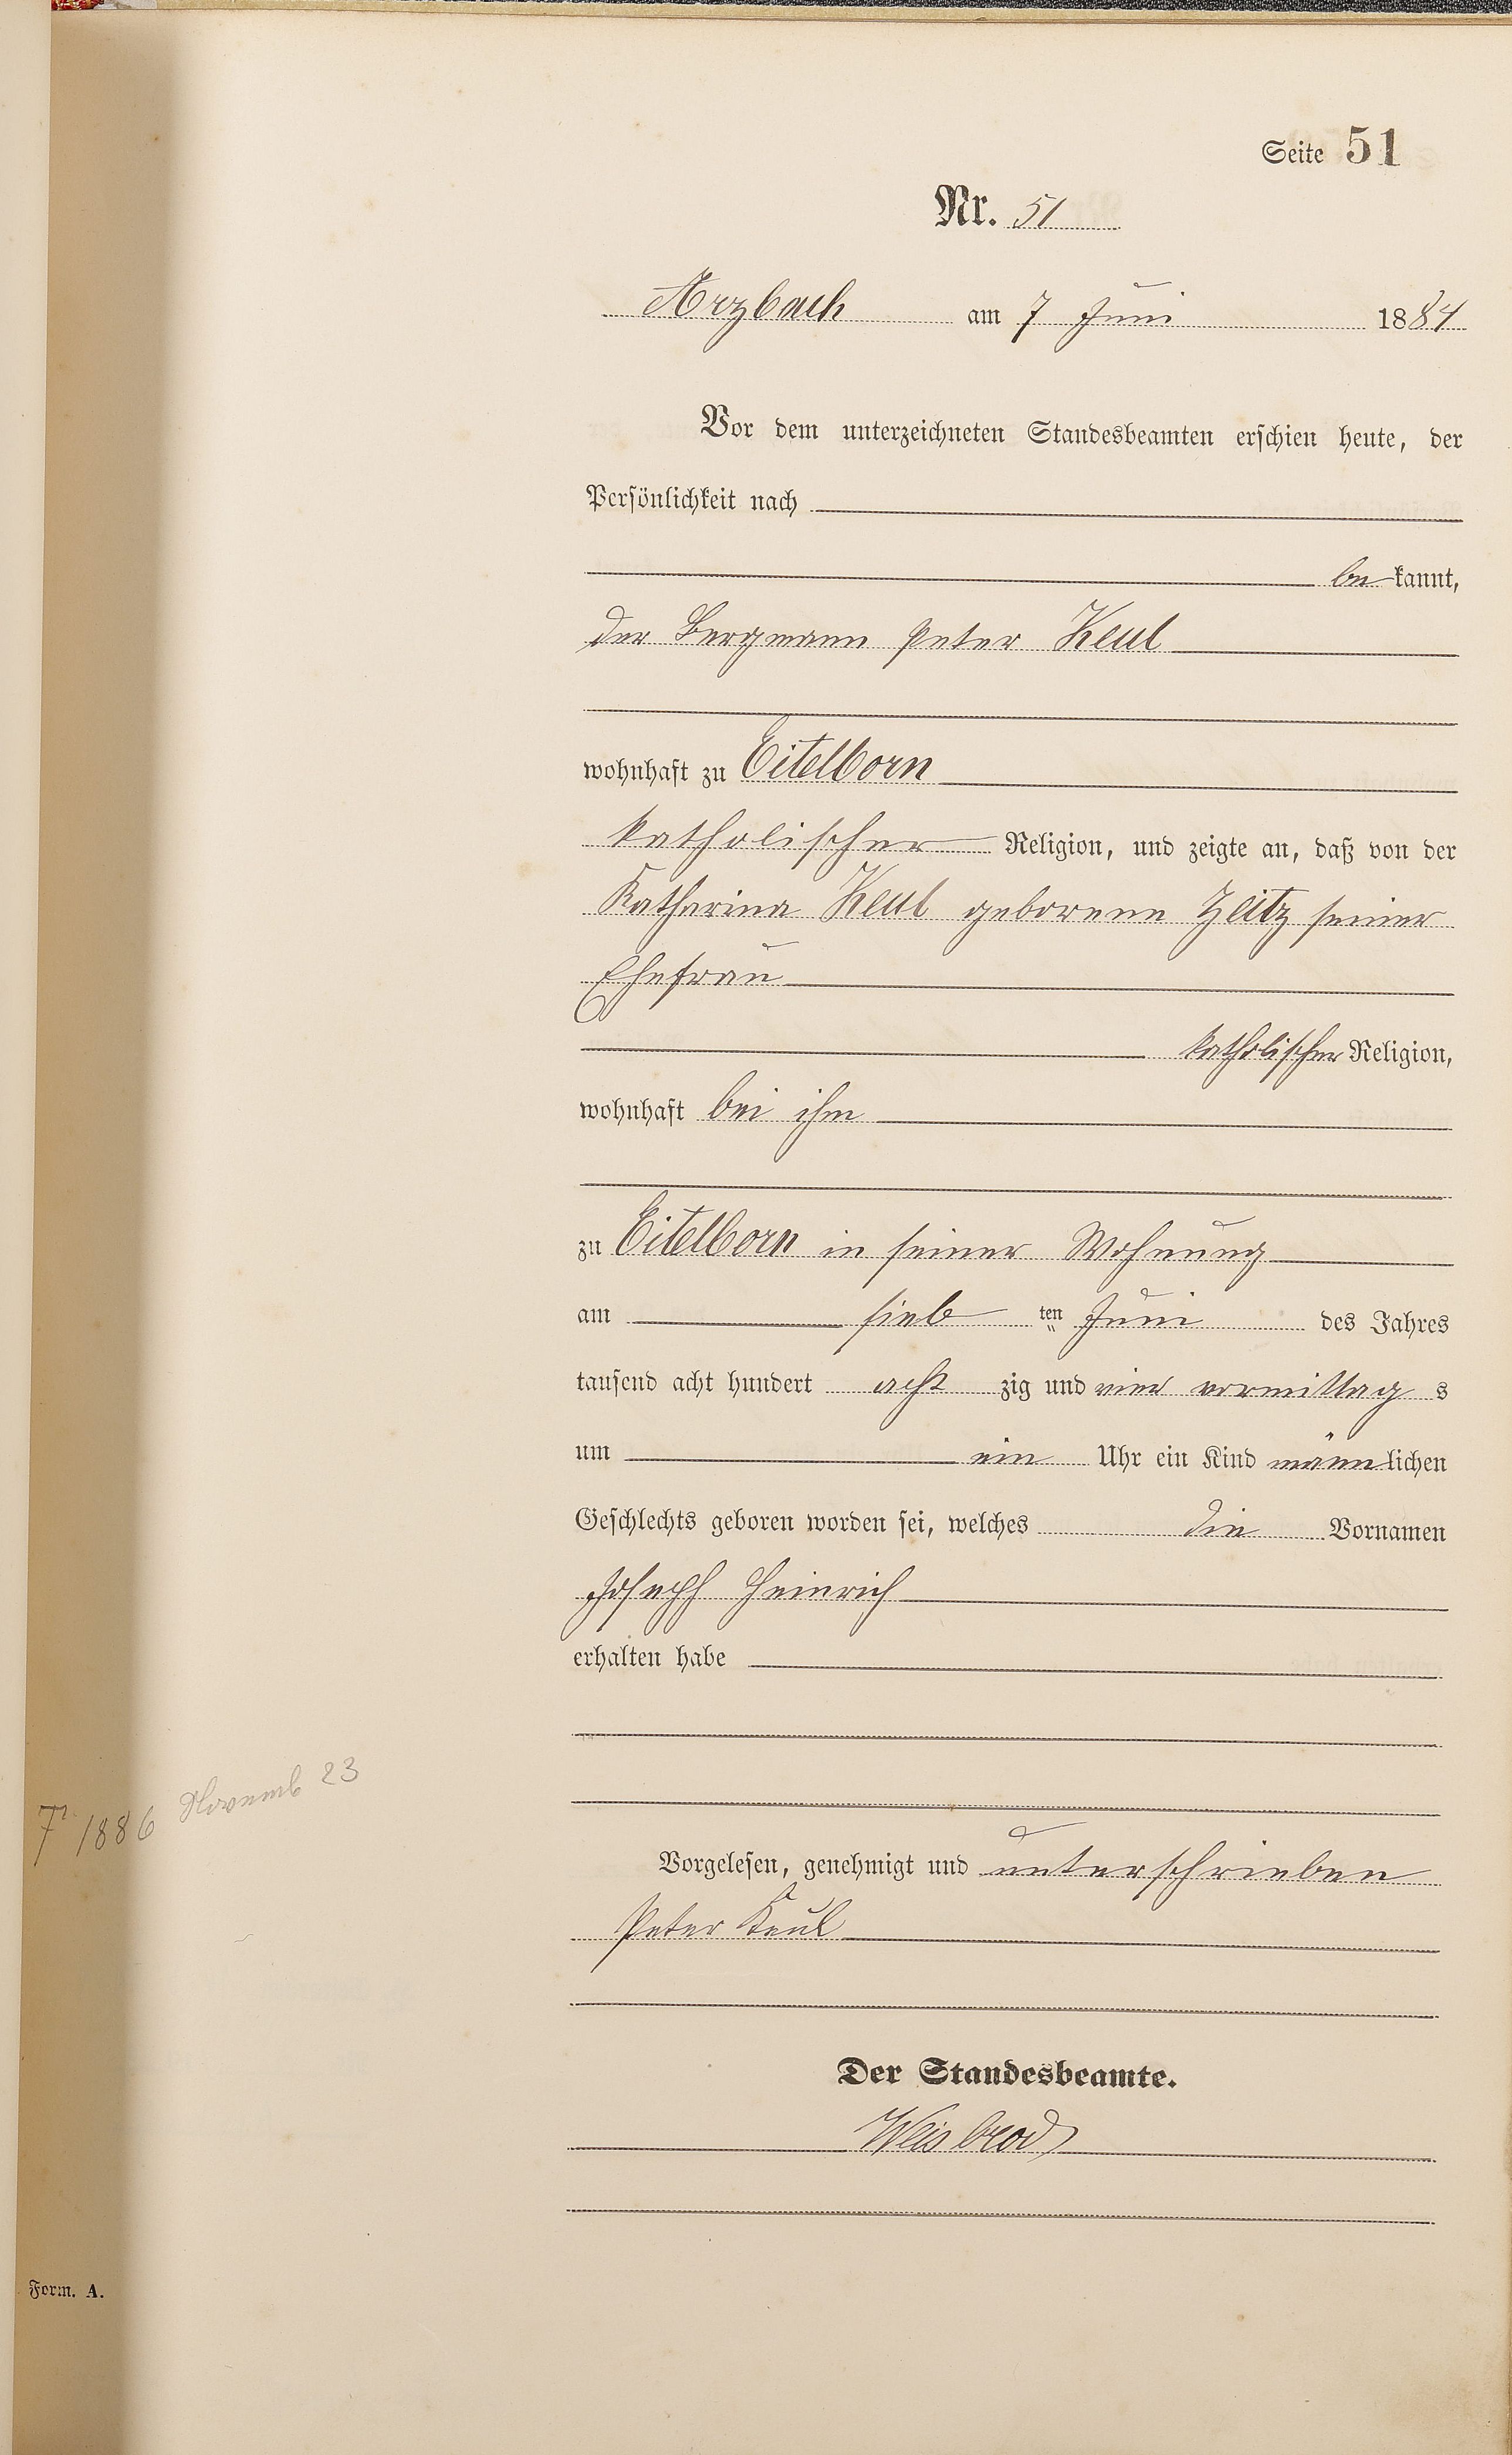 Seite 51
Nr. 51
Arzbach am 7 Juni 1884
Vor dem unterzeichneten Standesbeamten erschien heute, der
Persönlichkeit nach
be kannt,
der Bergmann Peter Keul
wohnhaft zu Eitelborn
katholischer Religion, und zeigte an, daß von der
Katharina Keul geborene Zeitz seiner
Ehefrau
katholischer Religion,
wohnhaft bei ihm
zu Eitelborn in seiner Wohnung
am sieb ten Juni des Jahres
tausend acht hundert acht zig und vier vormittag s
um ein Uhr ein Kind männ lichen
Geschlechts geboren worden sei, welches die Vornamen
Joseph Heinrich
erhalten habe
1886 Novemb 23
Vorgelesen, genehmigt und unterschrieben
Peter Keul
Der Standesbeamte.
Weisbrod
Form. A.